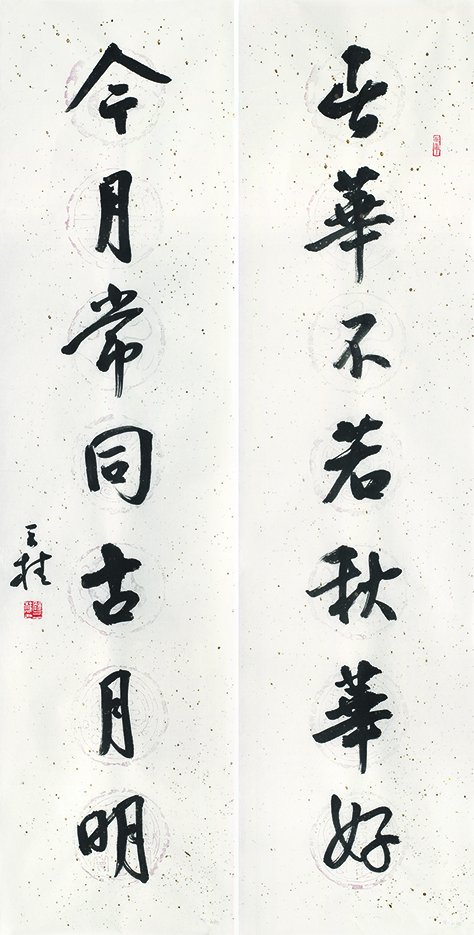 春華不若秋華好
今月常同古月明